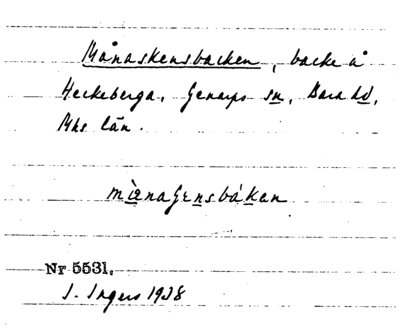 Månaskensbacken, backe å
Heckeberga, Genarps sn, Bara hd,
Mhs län.
Nr 5531.
I. Ingers 1938